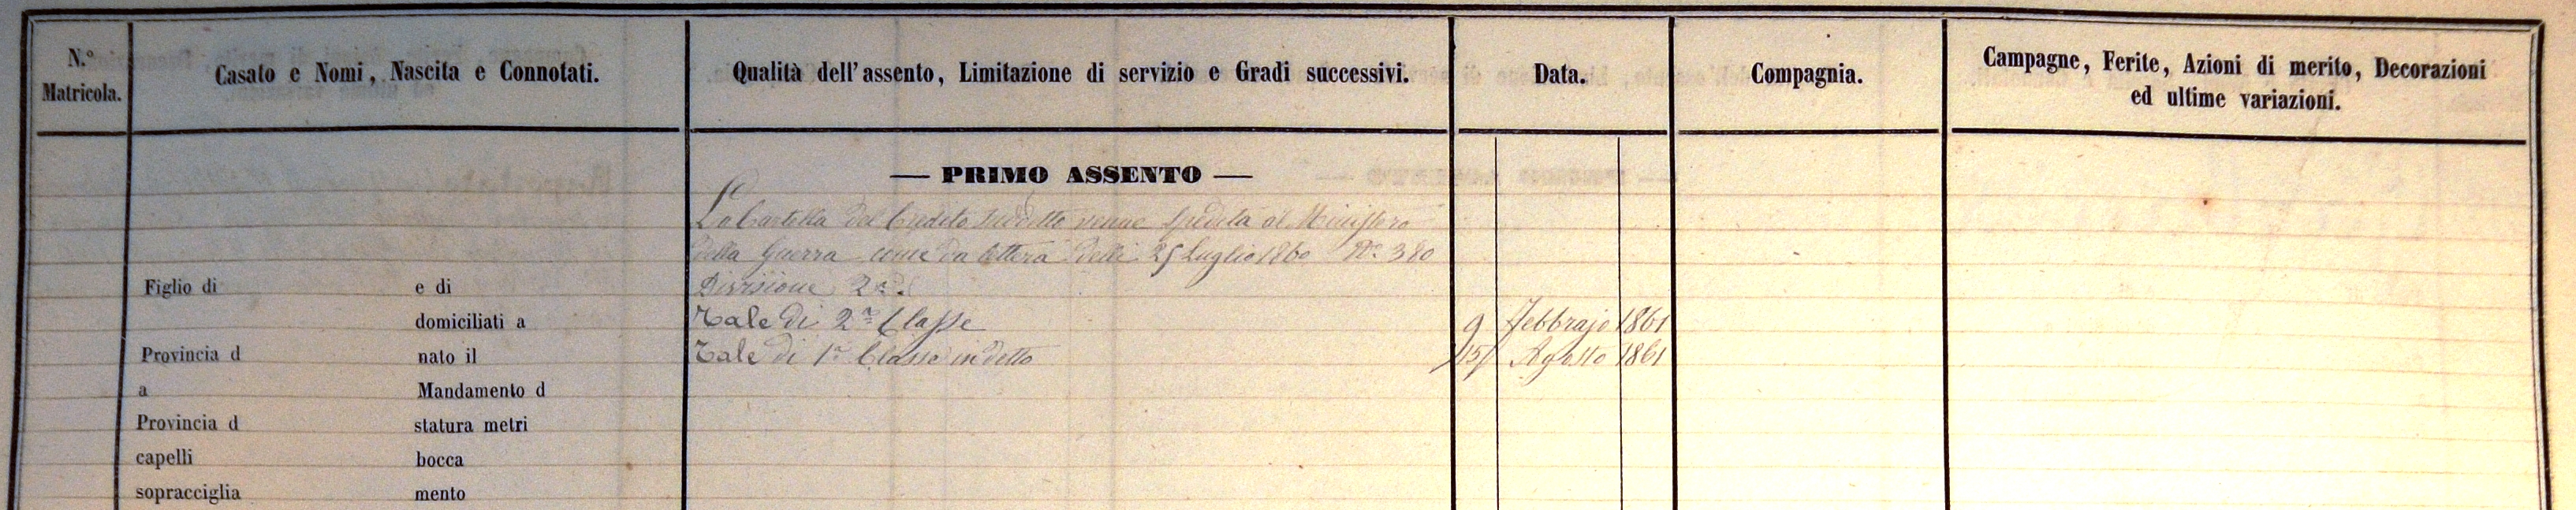 N.° Matricola.
Casato e Nomi, Nascita e Connotati.
Qualità dell'assento, Limitazione di servizio e Gradi successivi.
Data.
Compagnia.
Campagne, Ferite, Azioni di merito, Decorazioni
ed ultime variazioni.
— PRIMO ASSENTO —
La Cartella del Credito suddetto venne spedita al Ministero
della Guerra come da lettera delli 25 Luglio 1860 N.° 380
Figlio di e di Divisione 2.a
domiciliati a Tale di 2.a Classe 9 Febbrajo 1861
Provincia d nato il Tale di 1.a Classe in detto 15 Agosto 1861
a Mandamento d
Provincia d statura metri
capelli bocca
sopracciglia mento